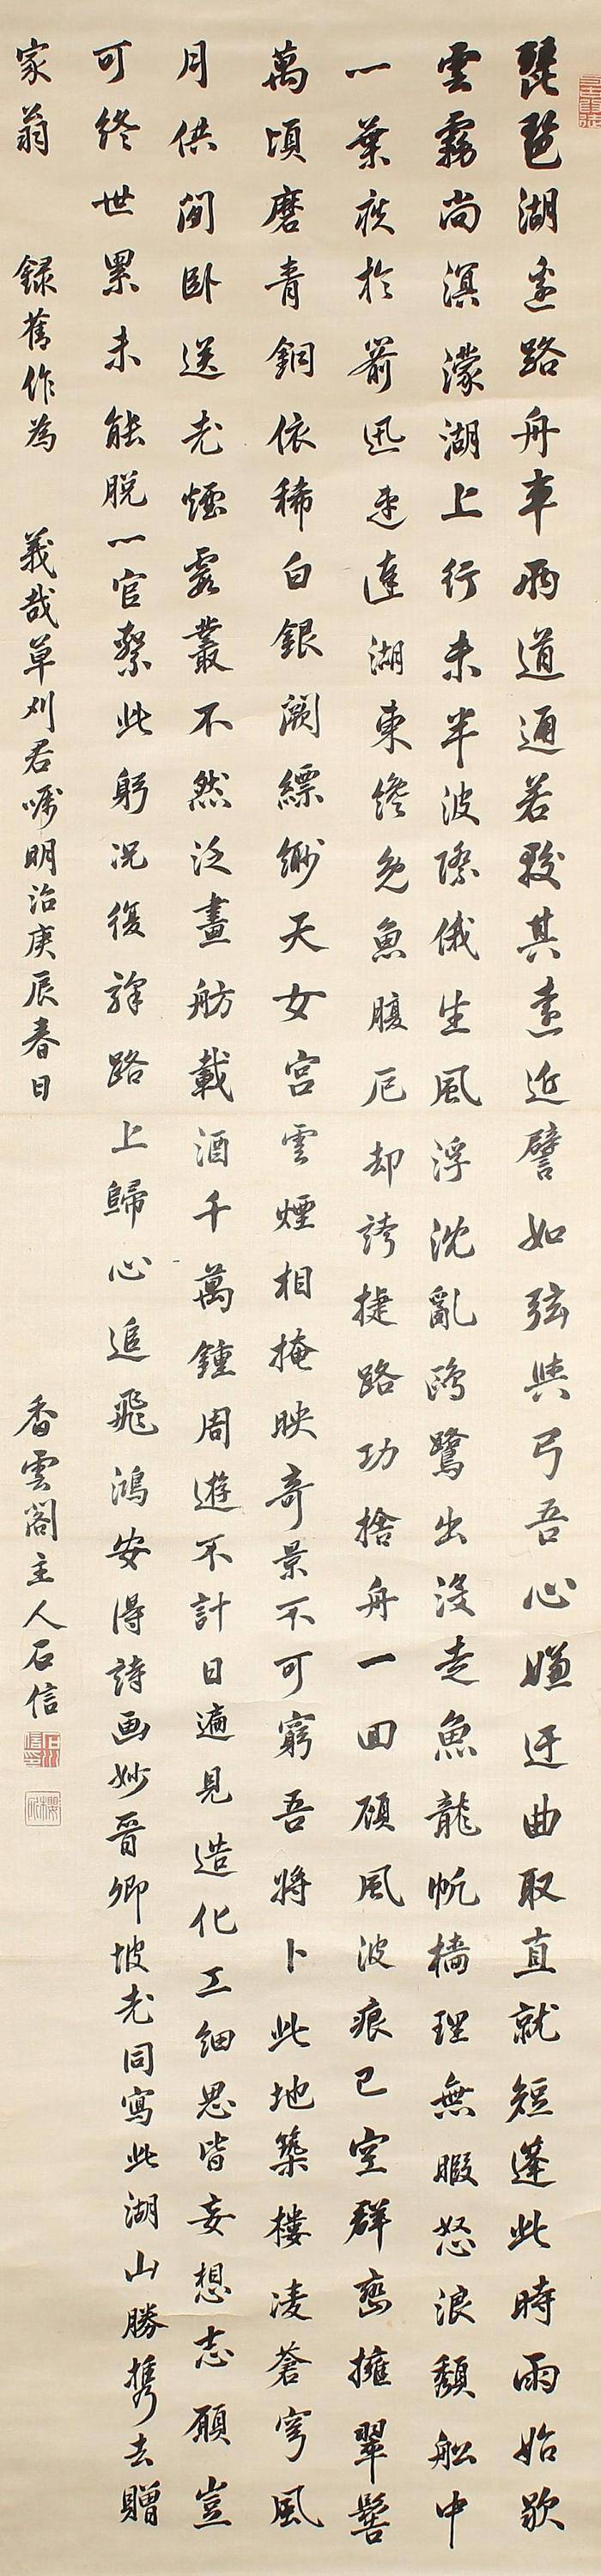 琵琶湖邊路舟車兩道通若較其遠近譬如弦與弓吾心嫌迂曲取直就短蓬此時雨始歇
雲霧尚溟濛湖上行未半波際俄生風浮沈亂鷗鷺出没走魚龍帆檣理無暇怒浪飜舩中
一葉疾於箭迅速達湖東纔免魚腹厄却誇捷路功捨舟一回顧風波痕已空群巒擁翠鬟
萬頃磨青銅依稀白銀闕縹緲天女宮雲煙相掩映奇景不可窮吾將卜此地築樓凌蒼穹風
月供閒臥送老煙霧叢不然泛畫舫載酒千萬鍾周遊不計日遍見造化工細思皆妄想志願豈
可終世累未能脱一官繫此躬況復驛路上歸心追飛鴻安得詩画妙晉卿坡老同寫此湖山勝攜去贈
家翁 録舊作為 義哉草刈君嘱明治庚辰春日 香雲閣主人石信